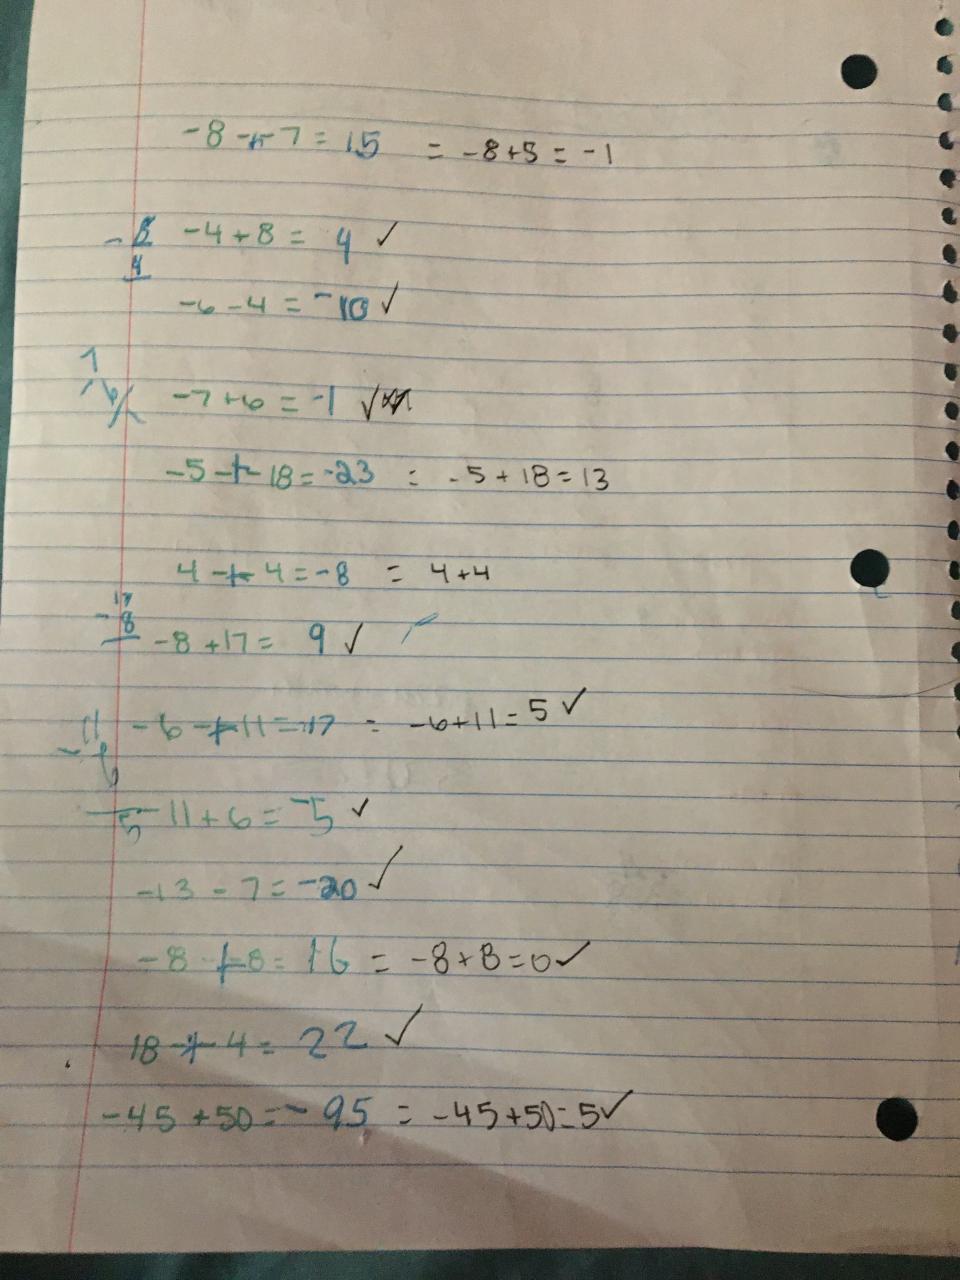 -8 -+- 7 = 15 = -8+5 = -1
-8 -4 + 8 = 4 ✓
4
-6 - 4 = -10 ✓
7
-6 -7 + 6 = -1 ✓
-5 -+- 18 = -23 = -5 + 18 = 13
4 -+- 4 = -8 = 4+4
17
-8 -8 + 17 = 9 ✓
11 -6 -+- 11 = -17 = -6+11 = 5 ✓
-6
5 -11 + 6 = -5 ✓
-13 - 7 = -20 ✓
-8 -+- 8 = 16 = -8+8=0 ✓
18 -+- 4 = 22 ✓
-45 + 50 = -95 = -45+50=5 ✓